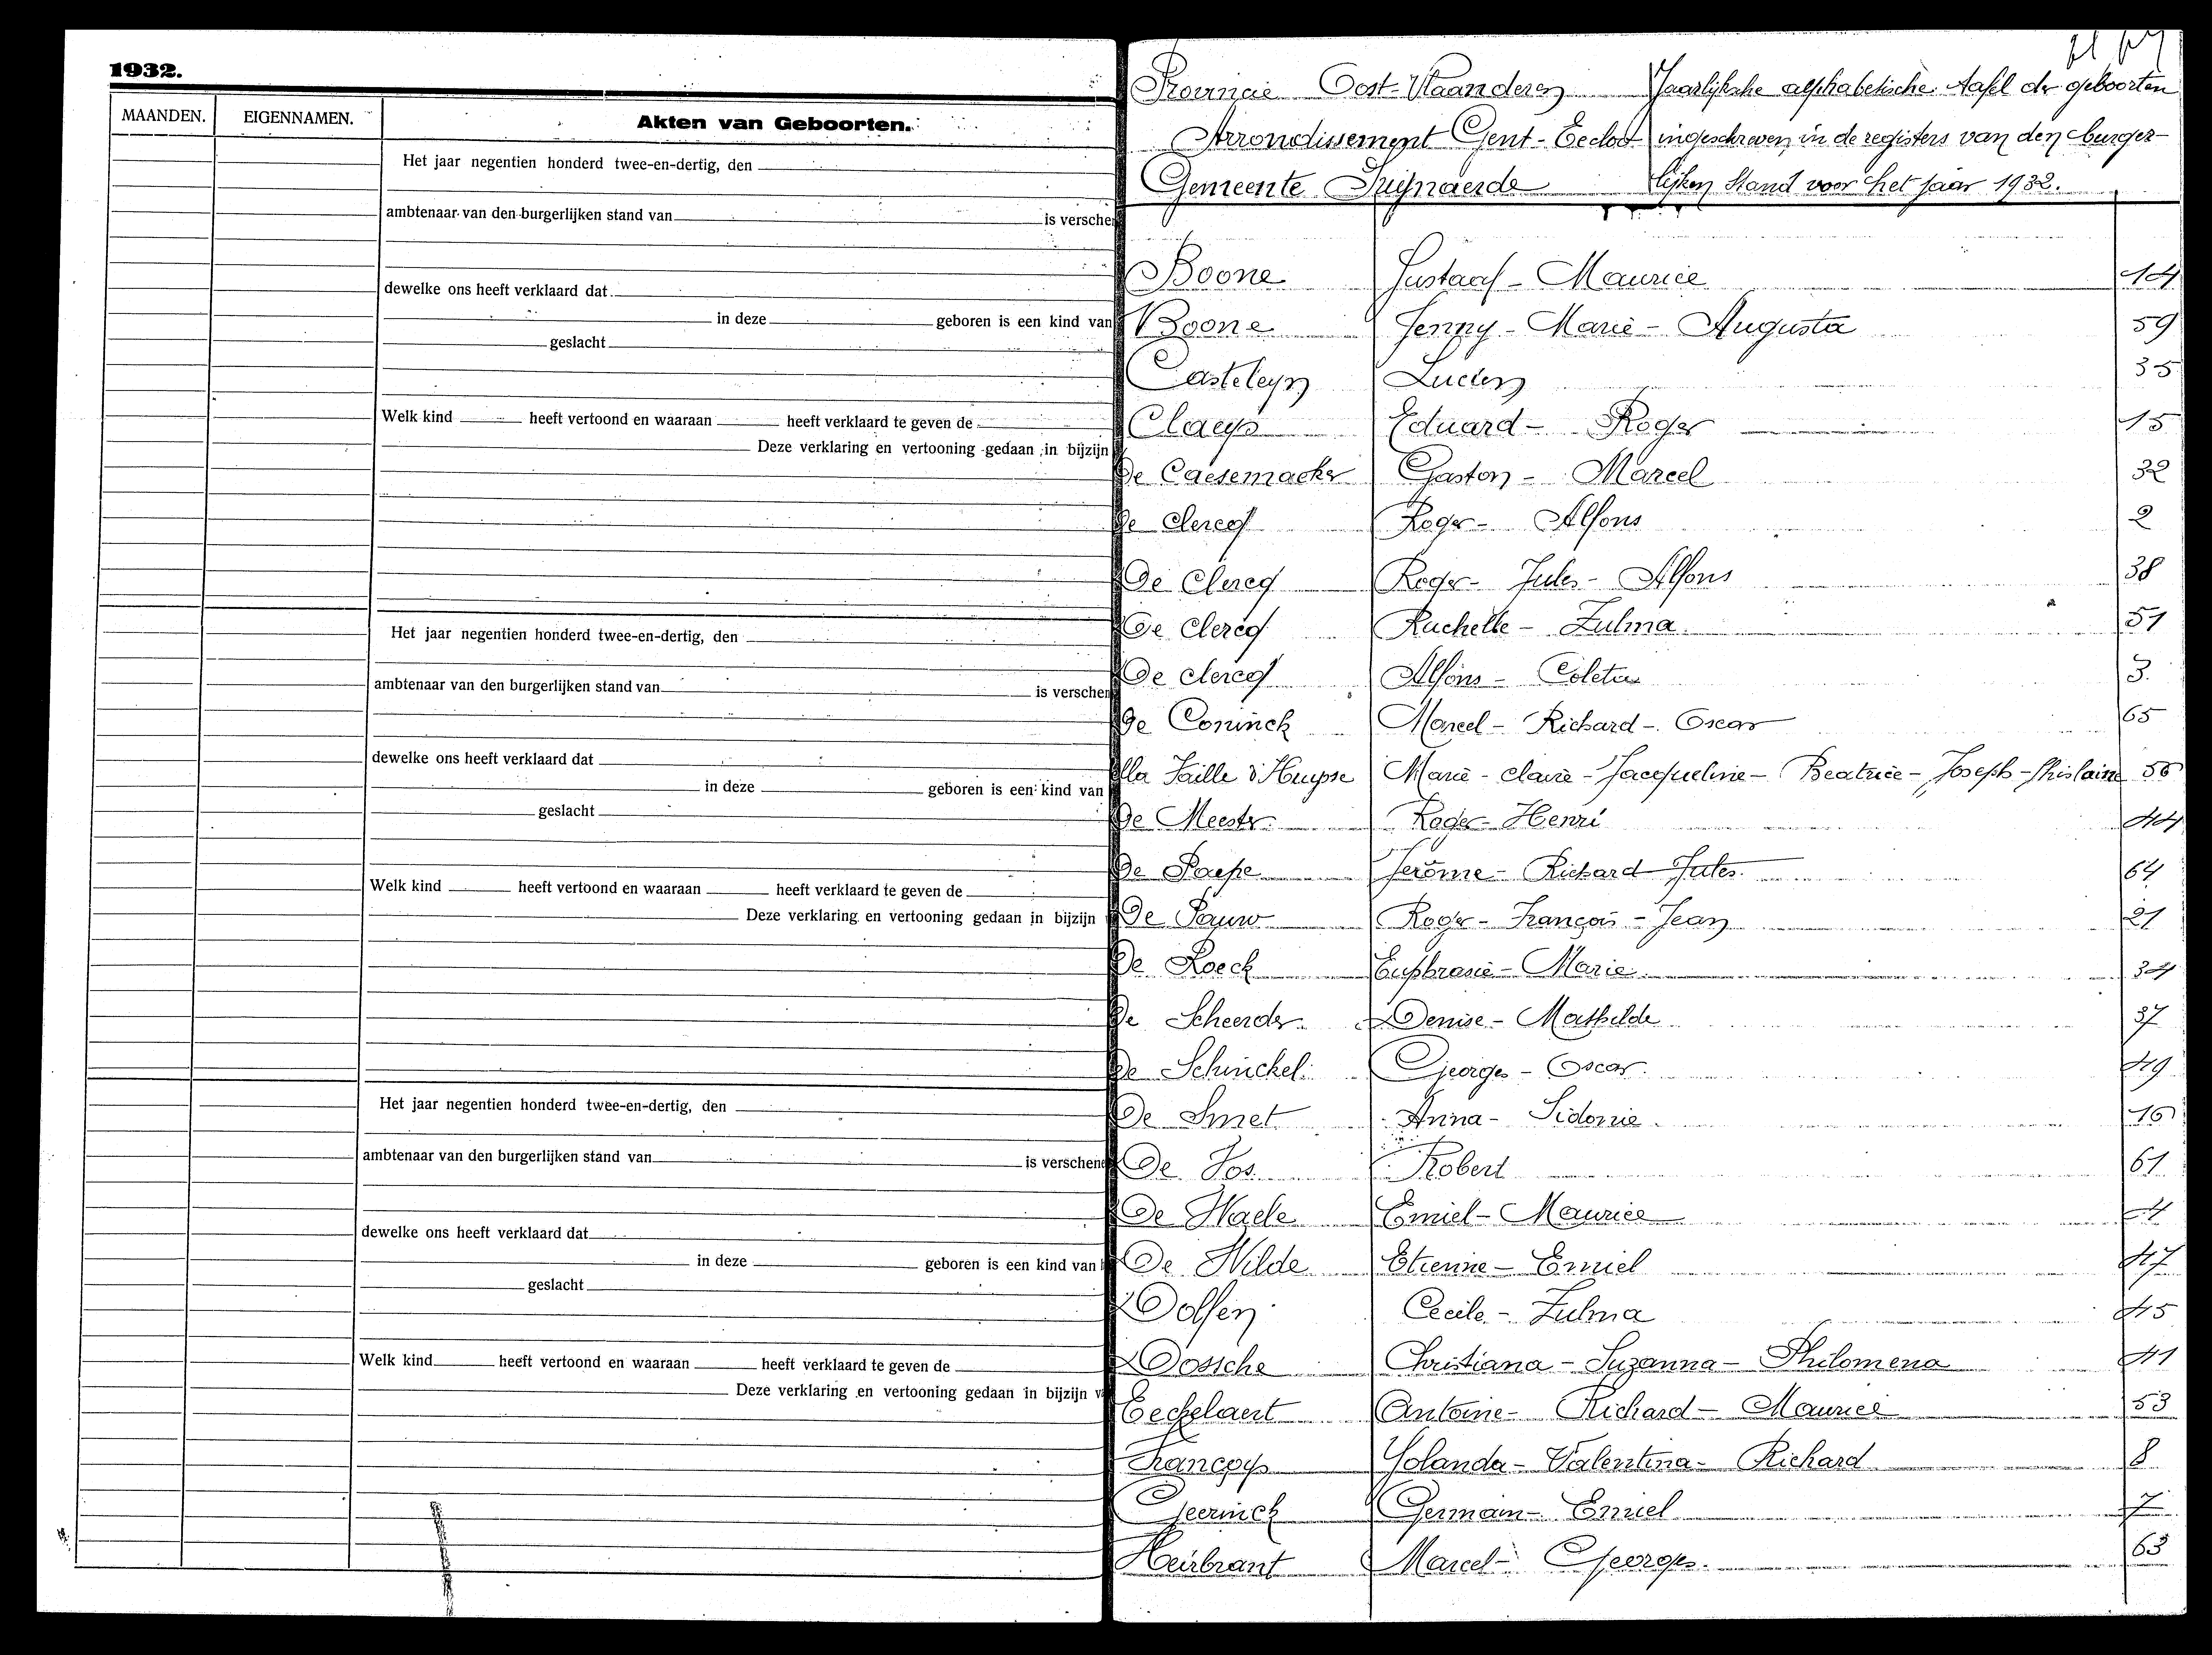 1932.
MAANDEN. EIGENNAMEN. Akten van Geboorten.
Het jaar negentien honderd twee-en-dertig, den
ambtenaar van den burgerlijken stand van is verschen
dewelke ons heeft verklaard dat
in deze geboren is een kind van
geslacht
Welk kind heeft vertoond en waaraan heeft verklaard te geven de
Deze verklaring en vertooning gedaan in bijzijn
Het jaar negentien honderd twee-en-dertig, den
ambtenaar van den burgerlijken stand van is verschen
dewelke ons heeft verklaard dat
in deze geboren is een kind van
geslacht
Welk kind heeft vertoond en waaraan heeft verklaard te geven de
Deze verklaring en vertooning gedaan in bijzijn
Het jaar negentien honderd twee-en-dertig, den
ambtenaar van den burgerlijken stand van is verschen
dewelke ons heeft verklaard dat
in deze geboren is een kind van
geslacht
Welk kind heeft vertoond en waaraan heeft verklaard te geven de
Deze verklaring en vertooning gedaan in bijzijn v
Provincie Oost-Vlaanderen Jaarlijksche alphabetische tafel der geboorten
Arrondissement Gent-Eecloo ingeschreven in de registers van den burger-
Gemeente Swijnaerde lijken stand voor het jaar 1932.
Boone Gustaaf - Maurice 14
Boone Jenny - Marie - Augusta 59
Casteleyn Lucien 35
Claeys Eduard - Roger 15
De Caesemaeker Gaston - Marcel 32
De Clercq Roger - Alfons 2
De Clercq Roger - Jules - Alfons 38
De Clercq Rachelle - Zulma 51
De Clercq Alfons - Coleta 3
De Coninck Marcel - Richard - Oscar 65
lla Faille d'Huysse Marie - Claire - Jacqueline - Beatrice - Joseph - Ghislaine 56
De Meester Roger - Henri 44
De Paepe Jerôme - Richard Jules 64
De Pauw Roger - François - Jean 21
De Roeck Euphrasie - Marie 34
De Scheerder Denise - Mathilde 37
De Schinckel Georges - Oscar 49
De Smet Anna - Sidonie 16
De Vos Robert 61
De Waele Emiel - Maurice 4
De Wilde Etienne - Emiel 47
Dolfen Cecile - Zulma 45
Dossche Christiana - Suzanna - Philomena 41
Eeckelaert Antoine - Richard - Maurice 53
Francoys Yolanda - Valentina - Richard 8
Geerinck Germain - Emiel 7
Heirbrant Marcel - Georges 63